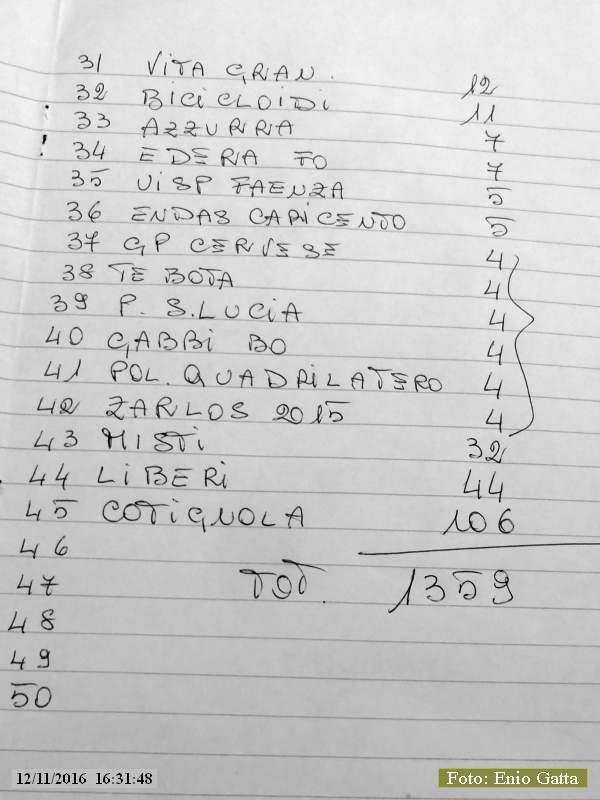 31 VITA GRAN. 12
32 BICICLOIDI 11
33 AZZURRA 7
! 34 EDERA FO 7
35 UISP FAENZA 5
36 ENDAS CARICENTO 5
37 GP CERVESE 4
38 TE BOTA 4
39 P. S.LUCIA 4
40 GABBI BO 4
41 POL. QUADRILATERO 4
42 ZARLOS 2015 4
43 MISTI 32
44 LIBERI 44
45 COTIGNOLA 106
46
47 TOT. 1359
48
49
50
12/11/2016 16:31:48
Foto: Enio Gatta